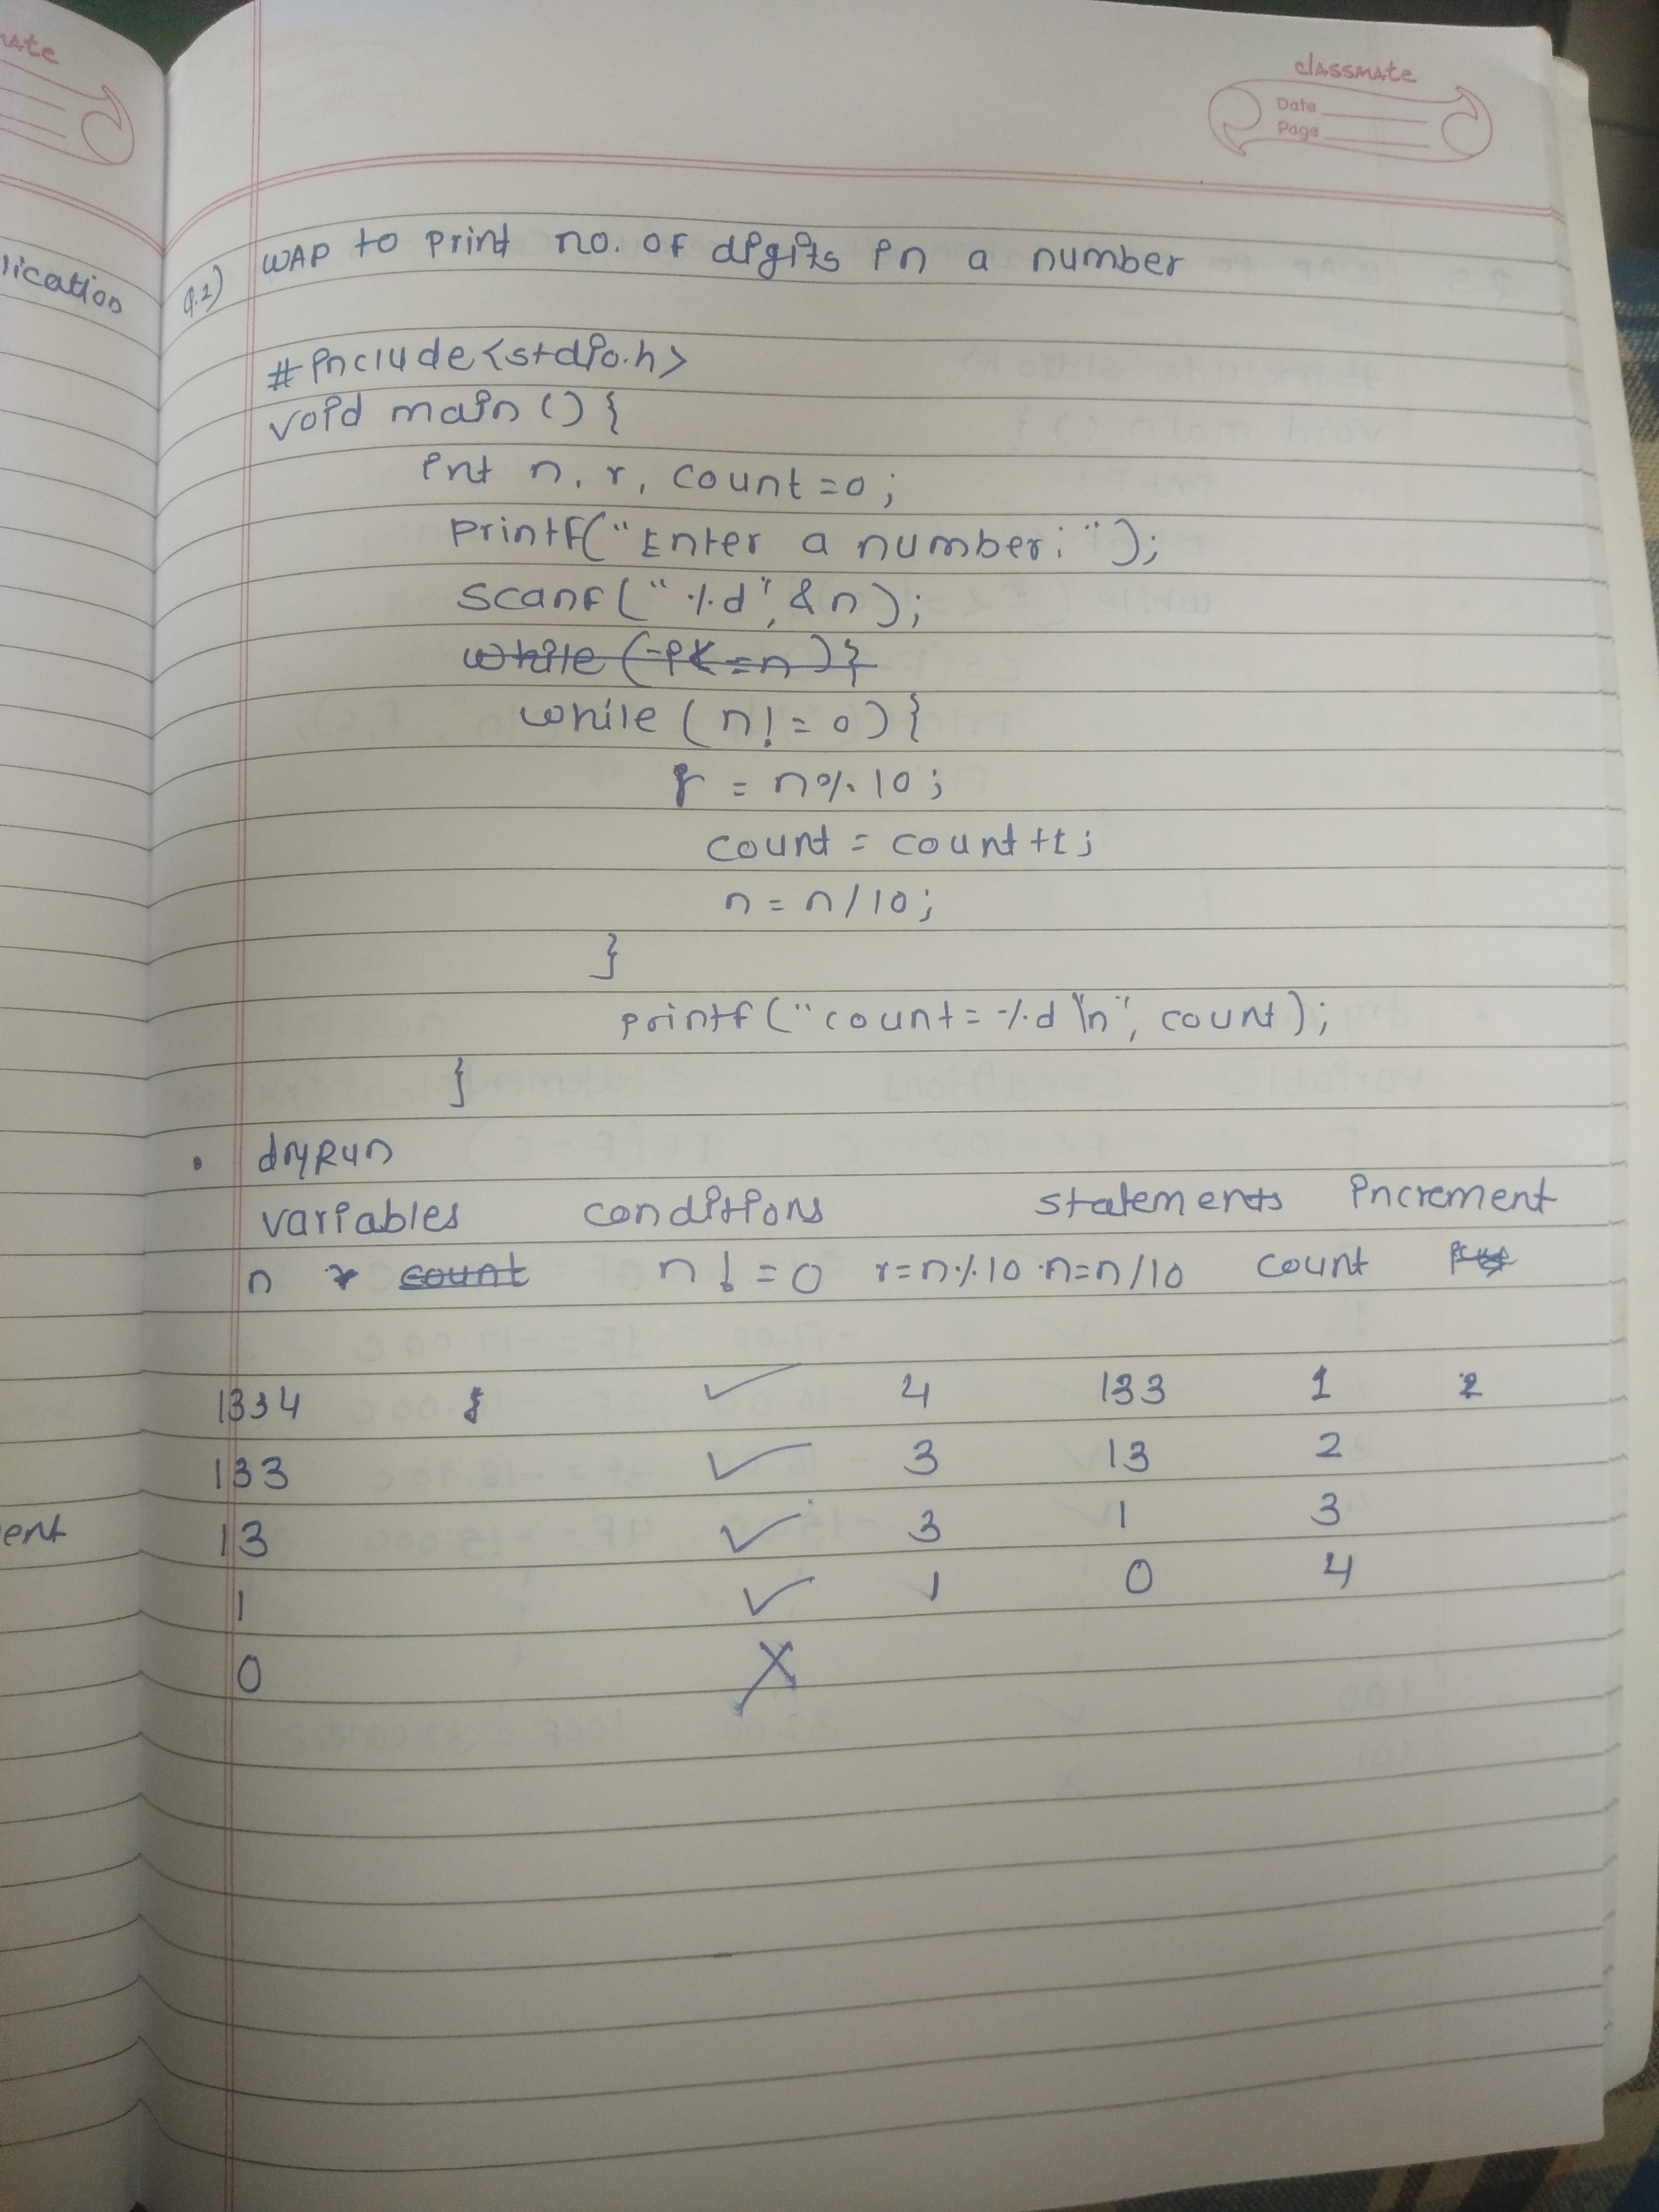 mate
classmate
Date
Page
lication
Q.2) WAP to print no. of digits in a number
#include<stdio.h>
void main () {
int n, r, count=0;
printf("Enter a number: ");
scanf("%d",&n);
while (i<=n){
while (n!=0){
r = n%10;
count = count+1;
n = n/10;
}
printf("count=%d\n", count);
}
• dryRun
variables conditions statements increment
n r count n!=0 r=n%10 n=n/10 count
1334 ✓ 4 133 1 2
133 ✓ 3 13 2
ent
13 ✓ 3 1 3
1 ✓ 1 0 4
0 X